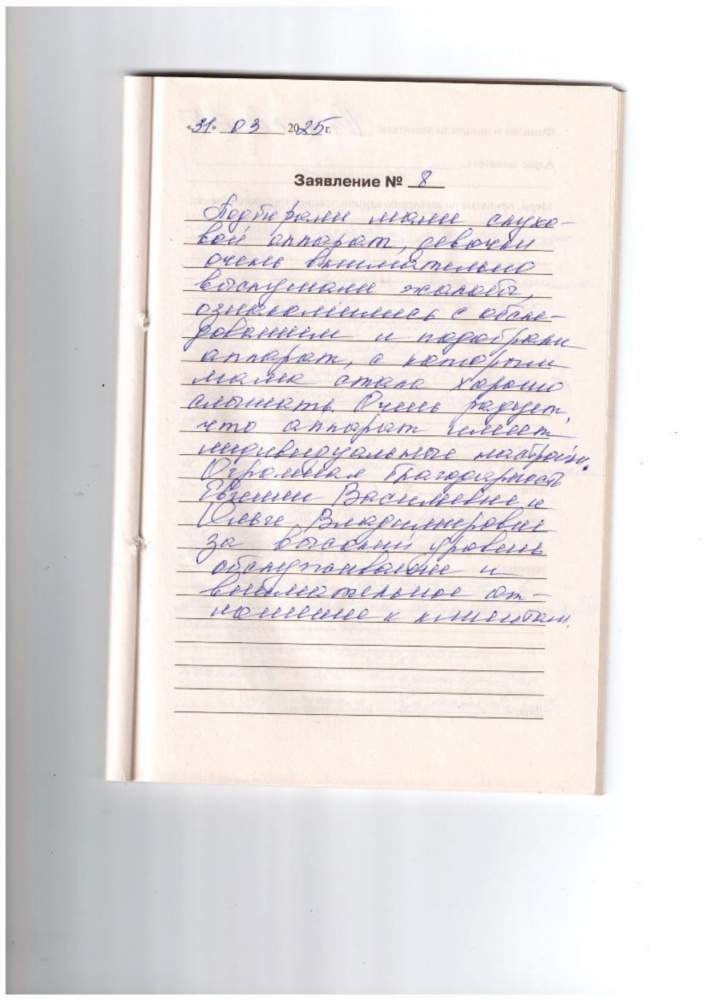 «31» 03 2025г.
Заявление № 8
Подбирали маме слухо-
вой аппарат, девочки
очень внимательно
выслушали жалобы,
ознакомились с обсле-
дованием и подобрали
аппарат, с которым
мама стала хорошо
слышать. Очень радует,
что аппарат имеет
индивидуальные настройки.
Огромная благодарность
Евгении Васильевне и
Ольге Владимировне
за высокий уровень
обслуживание и
внимательное от-
ношение к клиентам.